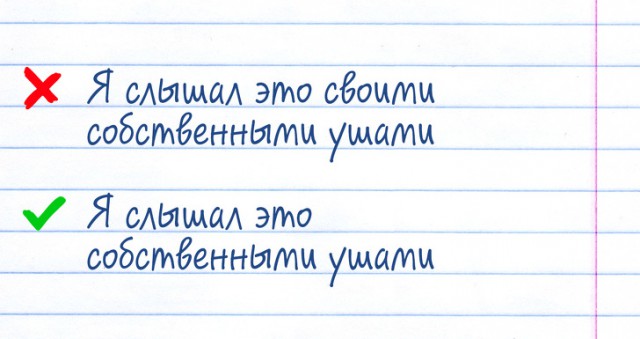 Я слышал это своими
собственными ушами
Я слышал это
собственными ушами